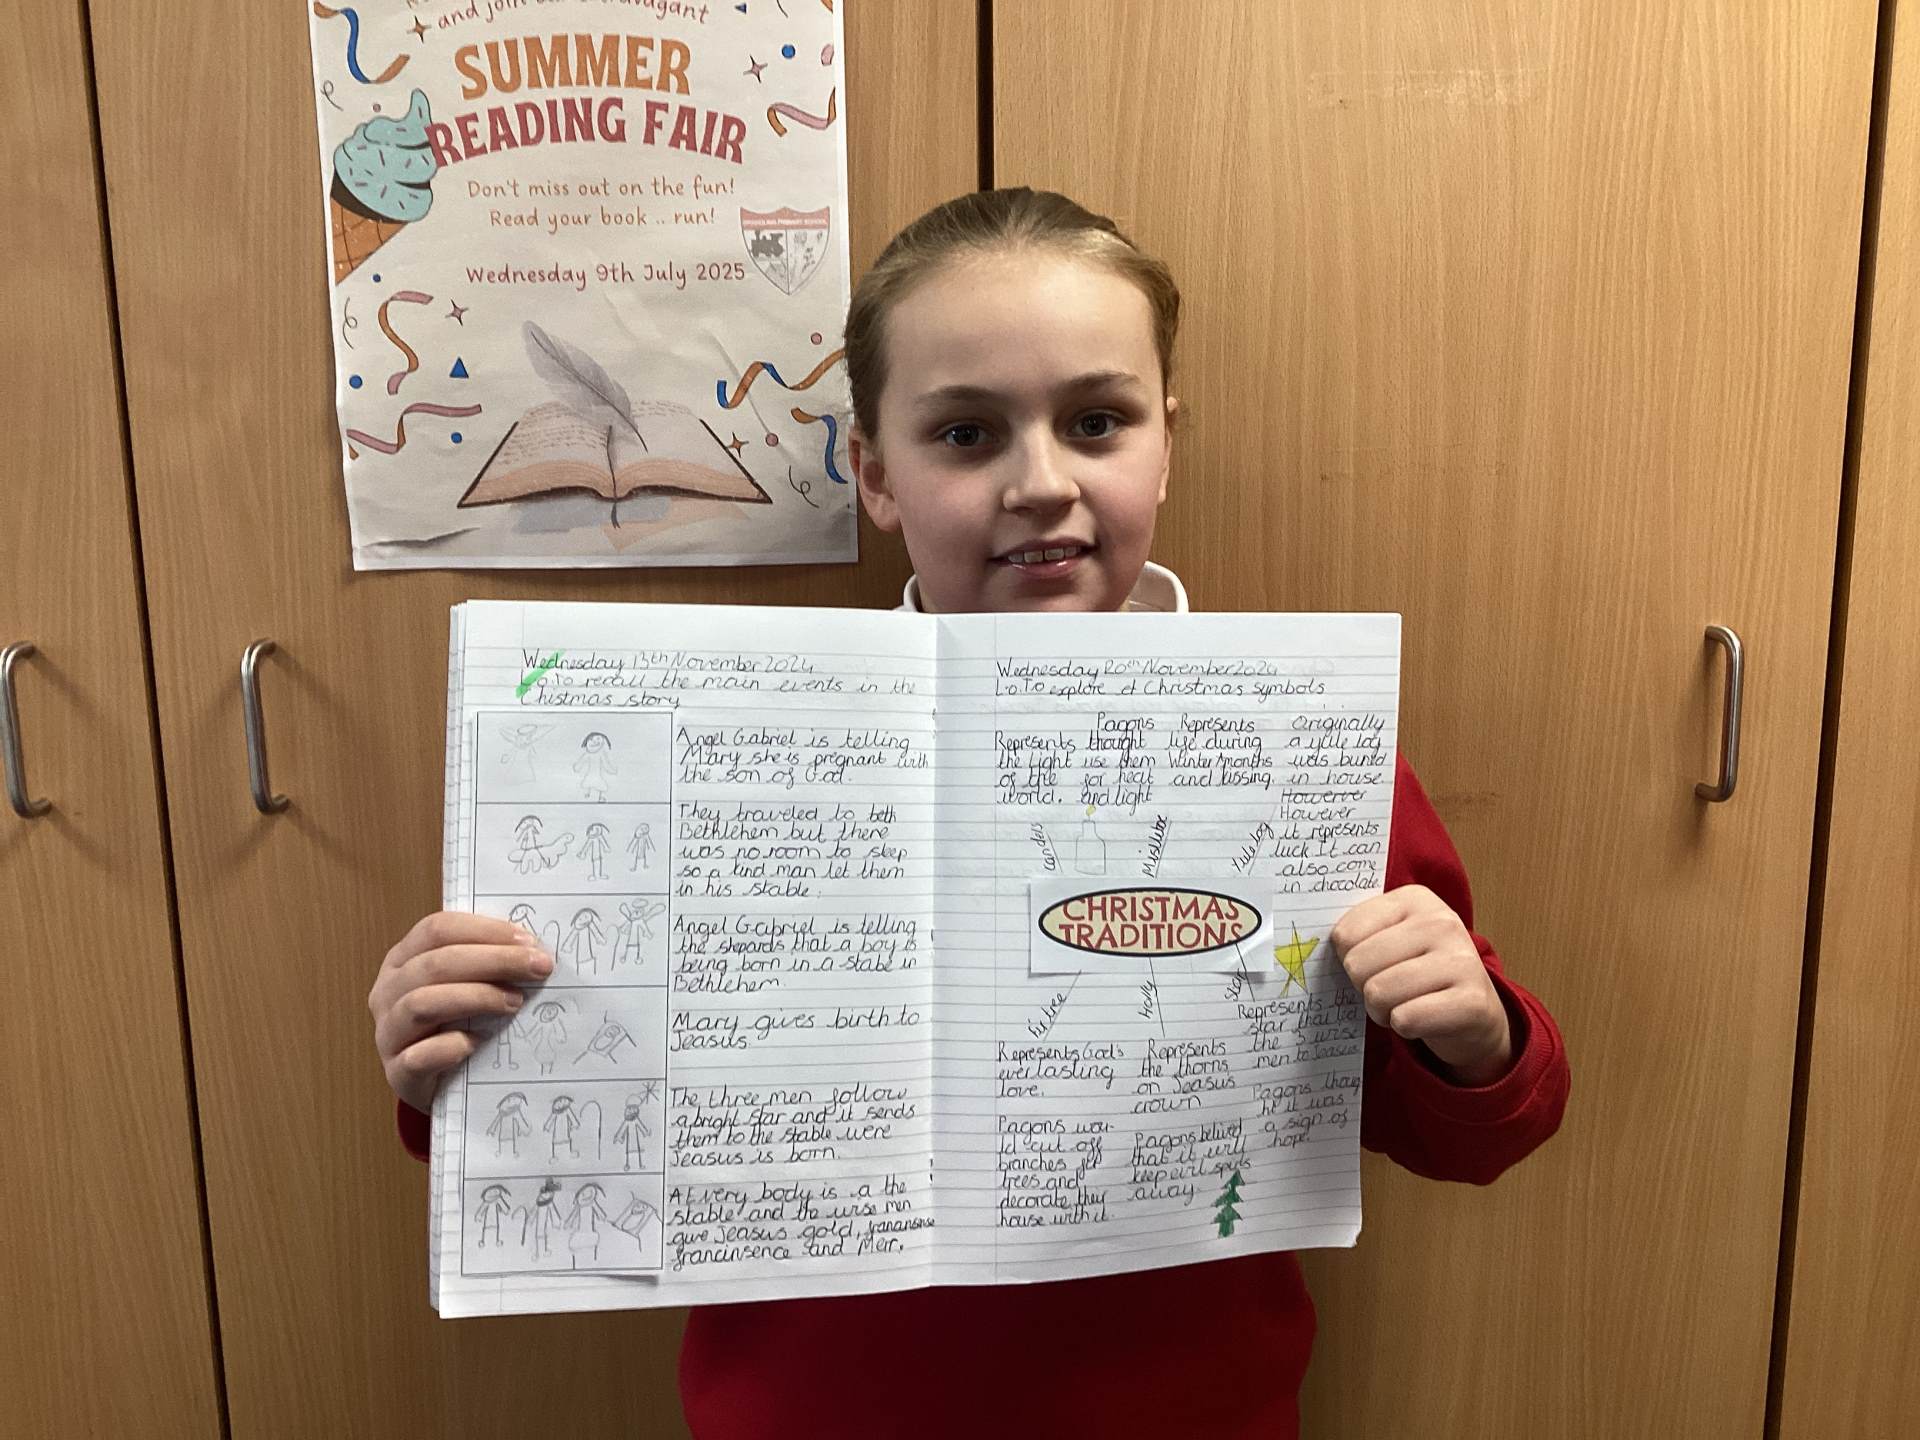 and join our extravagant
SUMMER
READING FAIR
Don't miss out on the fun!
Read your book .. run!
Wednesday 9th July 2025
PRIMARY SCHOOL
Wednesday 13th November 2024
L.O.To recall the main events in the
Chistmas story
Angel Gabriel is telling
Mary she is pregnant with
the son of God.
They traveled to beth
Bethlehem but there
was no room to sleep
so a kind man let them
in his stable.
Angel Gabriel is telling
the shepards that a boy is
being born in a stabe in
Bethlehem.
Mary gives birth to
Jeasus
The three men follow
a bright star and it sends
them to the stable were
Jeasus is born.
At Every body is a the
stable and the wise men
give Jeasus gold,
francinsence and Merr.
Wednesday 20th November 2024
L.O.To explore Christmas symbols
Represents
the light
of the
world.
Pagons
thought
use them
for heat
and light
Represents
life during
Winter months
and kissing.
Originally
a yule log
was buned
in house
Howerver
However
it represents
luck It can
also come
in chocolate
candels
Mistletoe
Yule log
CHRISTMAS
TRADITIONS
fir tree
Holly
Star
Represents God's
everlasting
love.
Pagons wou-
ld cut off
branches of
trees and
decorate they
house with it.
Represents
the thorns
on Jeasus
crown
Pagons belived
that it will
keep evil spirits
away
Represents the
star that led
the 3 wise
men to Jeasus
Pagons thoug
ht it was
a sign of
hope.